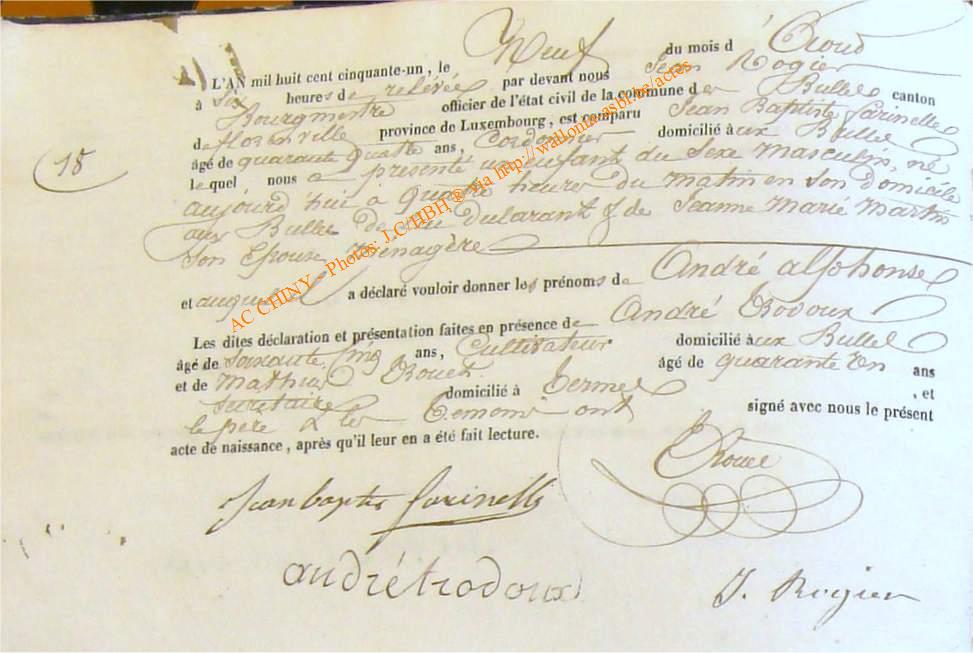 L'AN mil huit cent cinquante-un, le Neuf du mois d'Aoud
à Six heures de relévée par devant nous Jean Rogier
Bourgmestre officier de l'état civil de la commune des Bulles canton
de florenville province de Luxembourg, est comparu Jean Baptiste farinelle
âgé de quarante quatre ans, Cordonnier domicilié aux Bulles
lequel nous a présenté un enfant du Sexe Masculin, né
18
aujourd'hui à quatre heures du matin en son domicile
aux Bulles de lui déclarant & de Jeanne Marie Martin
son Epouse Ménagère
et auguste a déclaré vouloir donner les prénoms de André alphonse
Les dites déclaration et présentation faites en présence de André trodoux
âgé de soixante cinq ans, Cultivateur domicilié aux Bulles
et de Mathieu âgé de quarante un ans
secretaire domicilié à termes, et
le pere & les temoins ont signé avec nous le présent
acte de naissance, après qu'il leur en a été fait lecture.
Jean baptis farinelle
andré trodoux
J. Rogier
AC CHINY - Photos: J.C/HBH ® via http://wallonie.asbl.be/actes